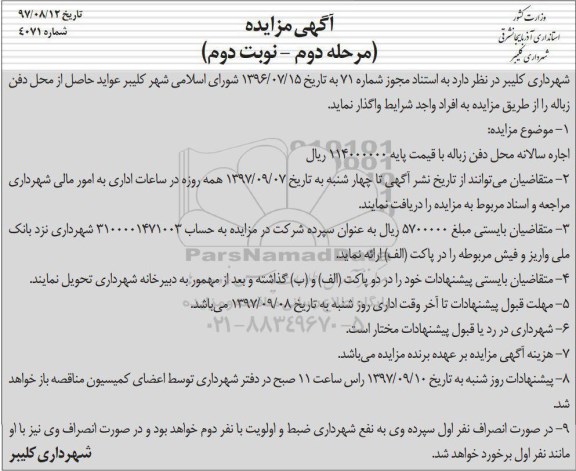 وزارت کشور
استانداری آذربایجانشرقی
شهرداری کلیبر
آگهی مزایده
(مرحله دوم – نوبت دوم)
تاریخ ۹۷/۰۸/۱۲
شماره ۴۰۷۱
شهرداری کلیبر در نظر دارد به استناد مجوز شماره ۷۱ به تاریخ ۱۳۹۶/۰۷/۱۵ شورای اسلامی شهر کلیبر عواید حاصل از محل دفن
زباله را از طریق مزایده به افراد واجد شرایط واگذار نماید.
۱– موضوع مزایده:
اجاره سالانه محل دفن زباله با قیمت پایه ۱۱۴۰۰۰۰۰۰ ریال
۲– متقاضیان می‌توانند از تاریخ نشر آگهی تا چهار شنبه به تاریخ ۱۳۹۷/۰۹/۰۷ همه روزه در ساعات اداری به امور مالی شهرداری
مراجعه و اسناد مربوط به مزایده را دریافت نمایند.
۳– متقاضیان بایستی مبلغ ۵۷۰۰۰۰۰ ریال به عنوان سپرده شرکت در مزایده به حساب ۳۱۰۰۰۰۱۴۷۱۰۰۳ شهرداری نزد بانک
ملی واریز و فیش مربوطه را در پاکت (الف) ارائه نماید.
۴– متقاضیان بایستی پیشنهادات خود را در دو پاکت (الف) و (ب) گذاشته و بعد از مهمور به دبیرخانه شهرداری تحویل نمایند.
۵– مهلت قبول پیشنهادات تا آخر وقت اداری روز شنبه به تاریخ ۱۳۹۷/۰۹/۰۸ می‌باشد.
۶– شهرداری در رد یا قبول پیشنهادات مختار است.
۷– هزینه آگهی مزایده بر عهده برنده مزایده می‌باشد.
۸– پیشنهادات روز شنبه به تاریخ ۱۳۹۷/۰۹/۱۰ راس ساعت ۱۱ صبح در دفتر شهرداری توسط اعضای کمیسیون مناقصه باز خواهد
شد.
۹– در صورت انصراف نفر اول سپرده وی به نفع شهرداری ضبط و اولویت با نفر دوم خواهد بود و در صورت انصراف وی نیز با او
مانند نفر اول برخورد خواهد شد.
شهرداری کلیبر
ParsNamadData
۰۲۱-۸۸۳۴۹۶۷۰-۵